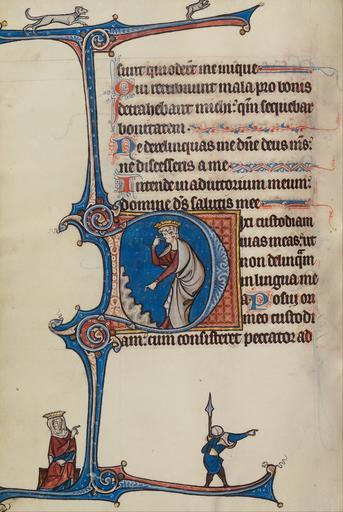 sunt qui oderunt me inique
Qui retribuunt mala pro bonis
detrahebant michi: qm̄ sequebar
bonitatem.
Ne derelinquas me dn̄e deus m̄s:
ne discesseris a me
Intende in adiutorium meum:
domine d̄s salutis mee
Dixi custodiam
uias meas: ut
non delinquam
in lingua me
a. Posui ori
meo custodi
am: cum consisteret peccator ad